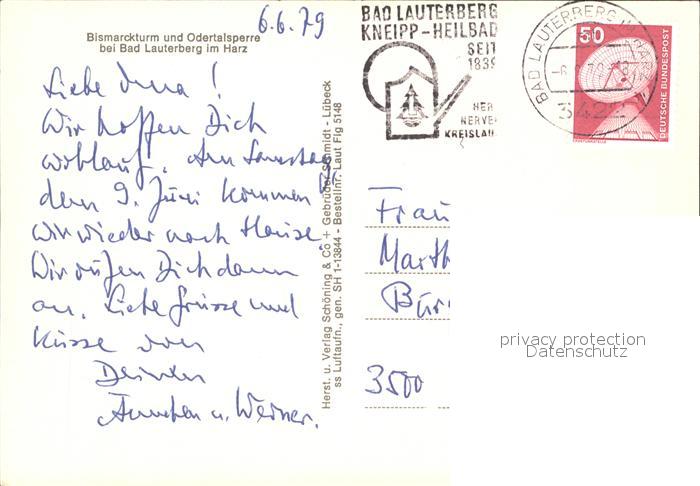 6.6.79
Bismarckturm und Odertalsperre
bei Bad Lauterberg im Harz
Liebe Oma!
Wir hoffen Dich
wohlauf. Am Samstag,
dem 9. Juni kommen
wir wieder nach Hause.
Wir rufen Dich dann
an. Liebe Grüsse und
Küsse von
Deinen
u. Werner.
Herst. u. Verlag Schöning & Co + Gebrüder Schmidt - Lübeck
ss Luftaufn., gen. SH 1-13844 - Bestellnr. Laut Fig 5148
BAD LAUTERBERG
KNEIPP-HEILBAD
SEIT
1839
HER
NERVE
KREISLAU
BAD LAUTERBERG IM HAR
3422
50
DEUTSCHE BUNDESPOST
Frau
Marth
Bür
3500
privacy protection
Datenschutz